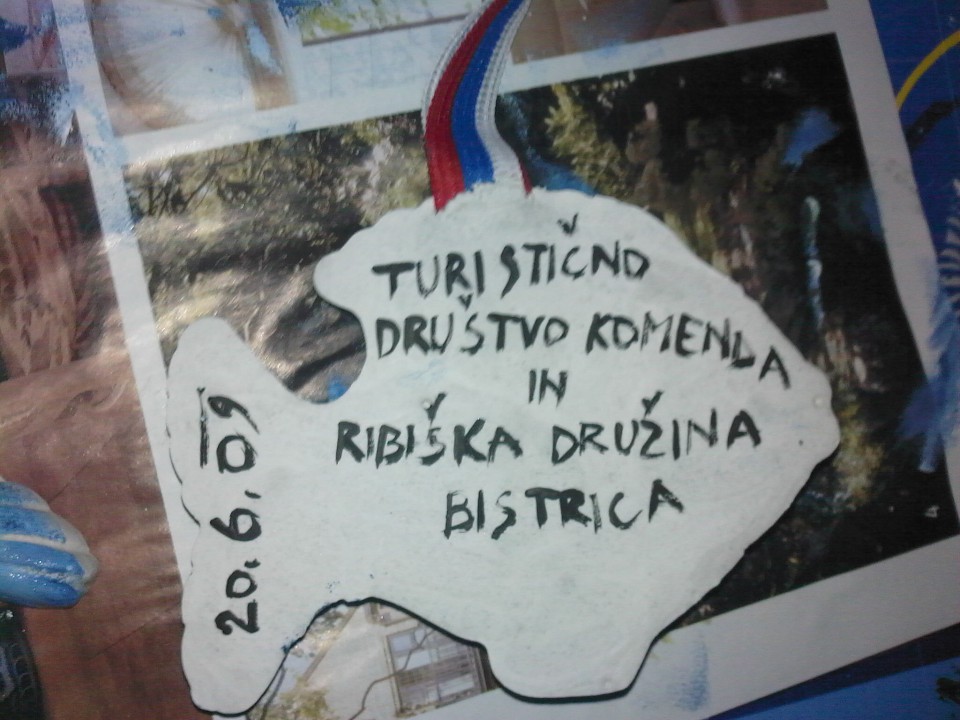 TURISTIČNO
DRUŠTVO KOMENDA
IN
RIBIŠKA DRUŽINA
BISTRICA
20.6.09